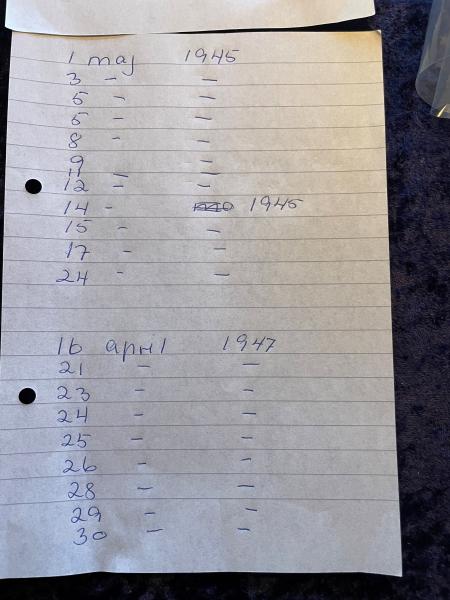 1 maj 1945
3 - -
5 - -
5 - -
8 - -
9 -
11 - -
12 - -
14 - 1945
15 - -
17 - -
24 - -
16 april 1947
21 - -
23 - -
24 - -
25 - -
26 - -
28 - -
29 - -
30 - -